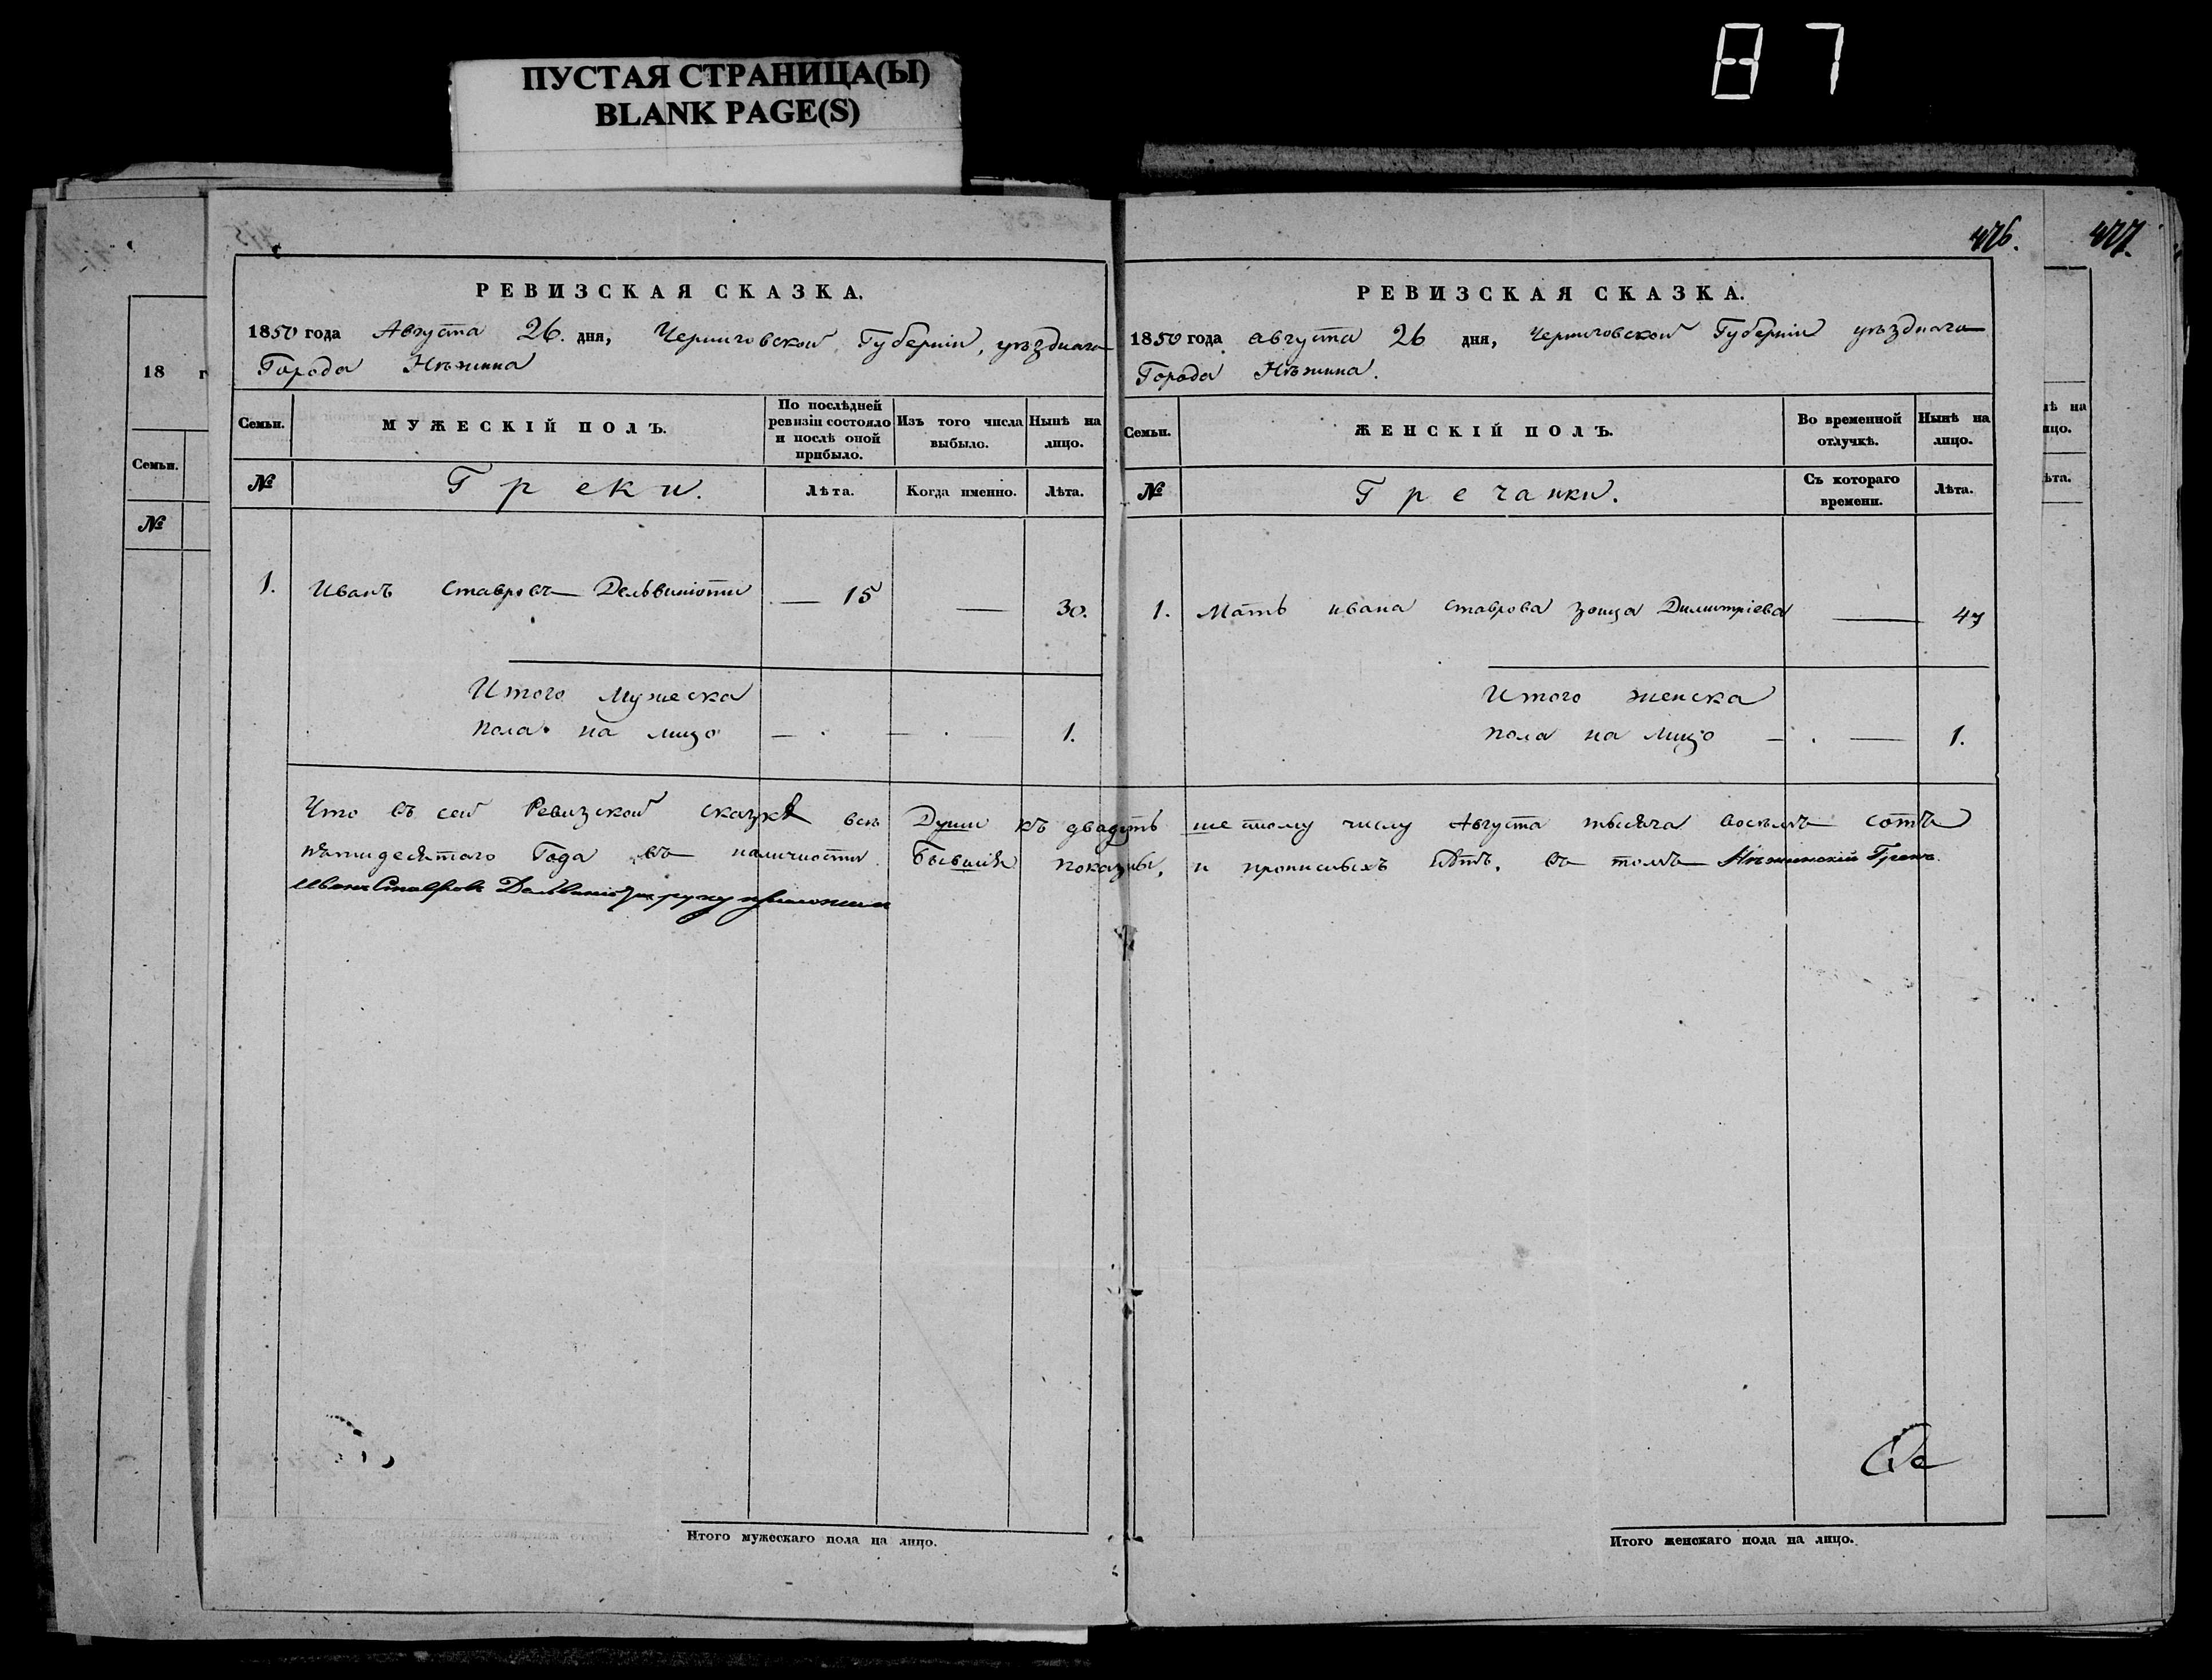 87
ПУСТАЯ СТРАНИЦА(Ы)
BLANK PAGE(S)
476.
477.
18 г
Семьи.
№
РЕВИЗСКАЯ СКАЗКА.
1850 года Августа 26. дня, Черниговской Губерніи, уѣзднаго
Города Нѣжина
Семьи.
МУЖЕСКІЙ ПОЛЪ.
По послѣдней ревизіи состояло и послѣ оной прибыло.
Изъ того числа выбыло.
Нынѣ на лицо.
№
Греки.
Лѣта.
Когда именно.
Лѣта.
1. Иванъ Ставровъ Дельвиніоти — 15 — 30.
Итого мужеска
пола на лицо — . — . — 1.
РЕВИЗСКАЯ СКАЗКА.
1850 года августа 26 дня, Черниговской Губерніи уѣзднаго
Города Нѣжина.
Семьи.
ЖЕНСКІЙ ПОЛЪ.
Во временной отлучкѣ.
Нынѣ на лицо.
№
Гречанки.
Съ котораго времени.
Лѣта.
1. Мать ивана ставрова зоица Димитріева — 47
Итого женска
пола на лицо — . — 1.
Что въ сей Ревизской сказкѣ всѣ Души къ двадцать шестому числу Августа тысяча восемъ сотъ
пятидесятаго Года въ наличности Бывшія показаны, и прописныхъ нѣтъ, въ томъ Нѣжинскій Грекъ
Иванъ Ставровъ руку приложил
Итого мужескаго пола на лицо.
Итого женскаго пола на лицо.
ѣ на
ицо.
ѣта.